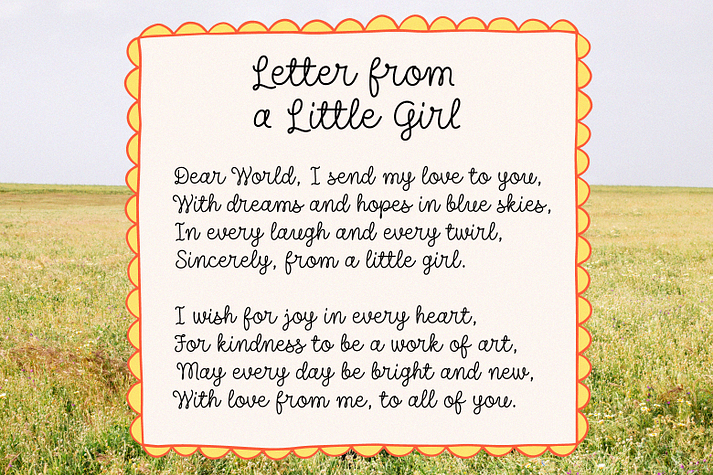 Letter from
a Little Girl
Dear World, I send my love to you,
With dreams and hopes in blue skies,
In every laugh and every twirl,
Sincerely, from a little girl.
I wish for joy in every heart,
For kindness to be a work of art,
May every day be bright and new,
With love from me, to all of you.